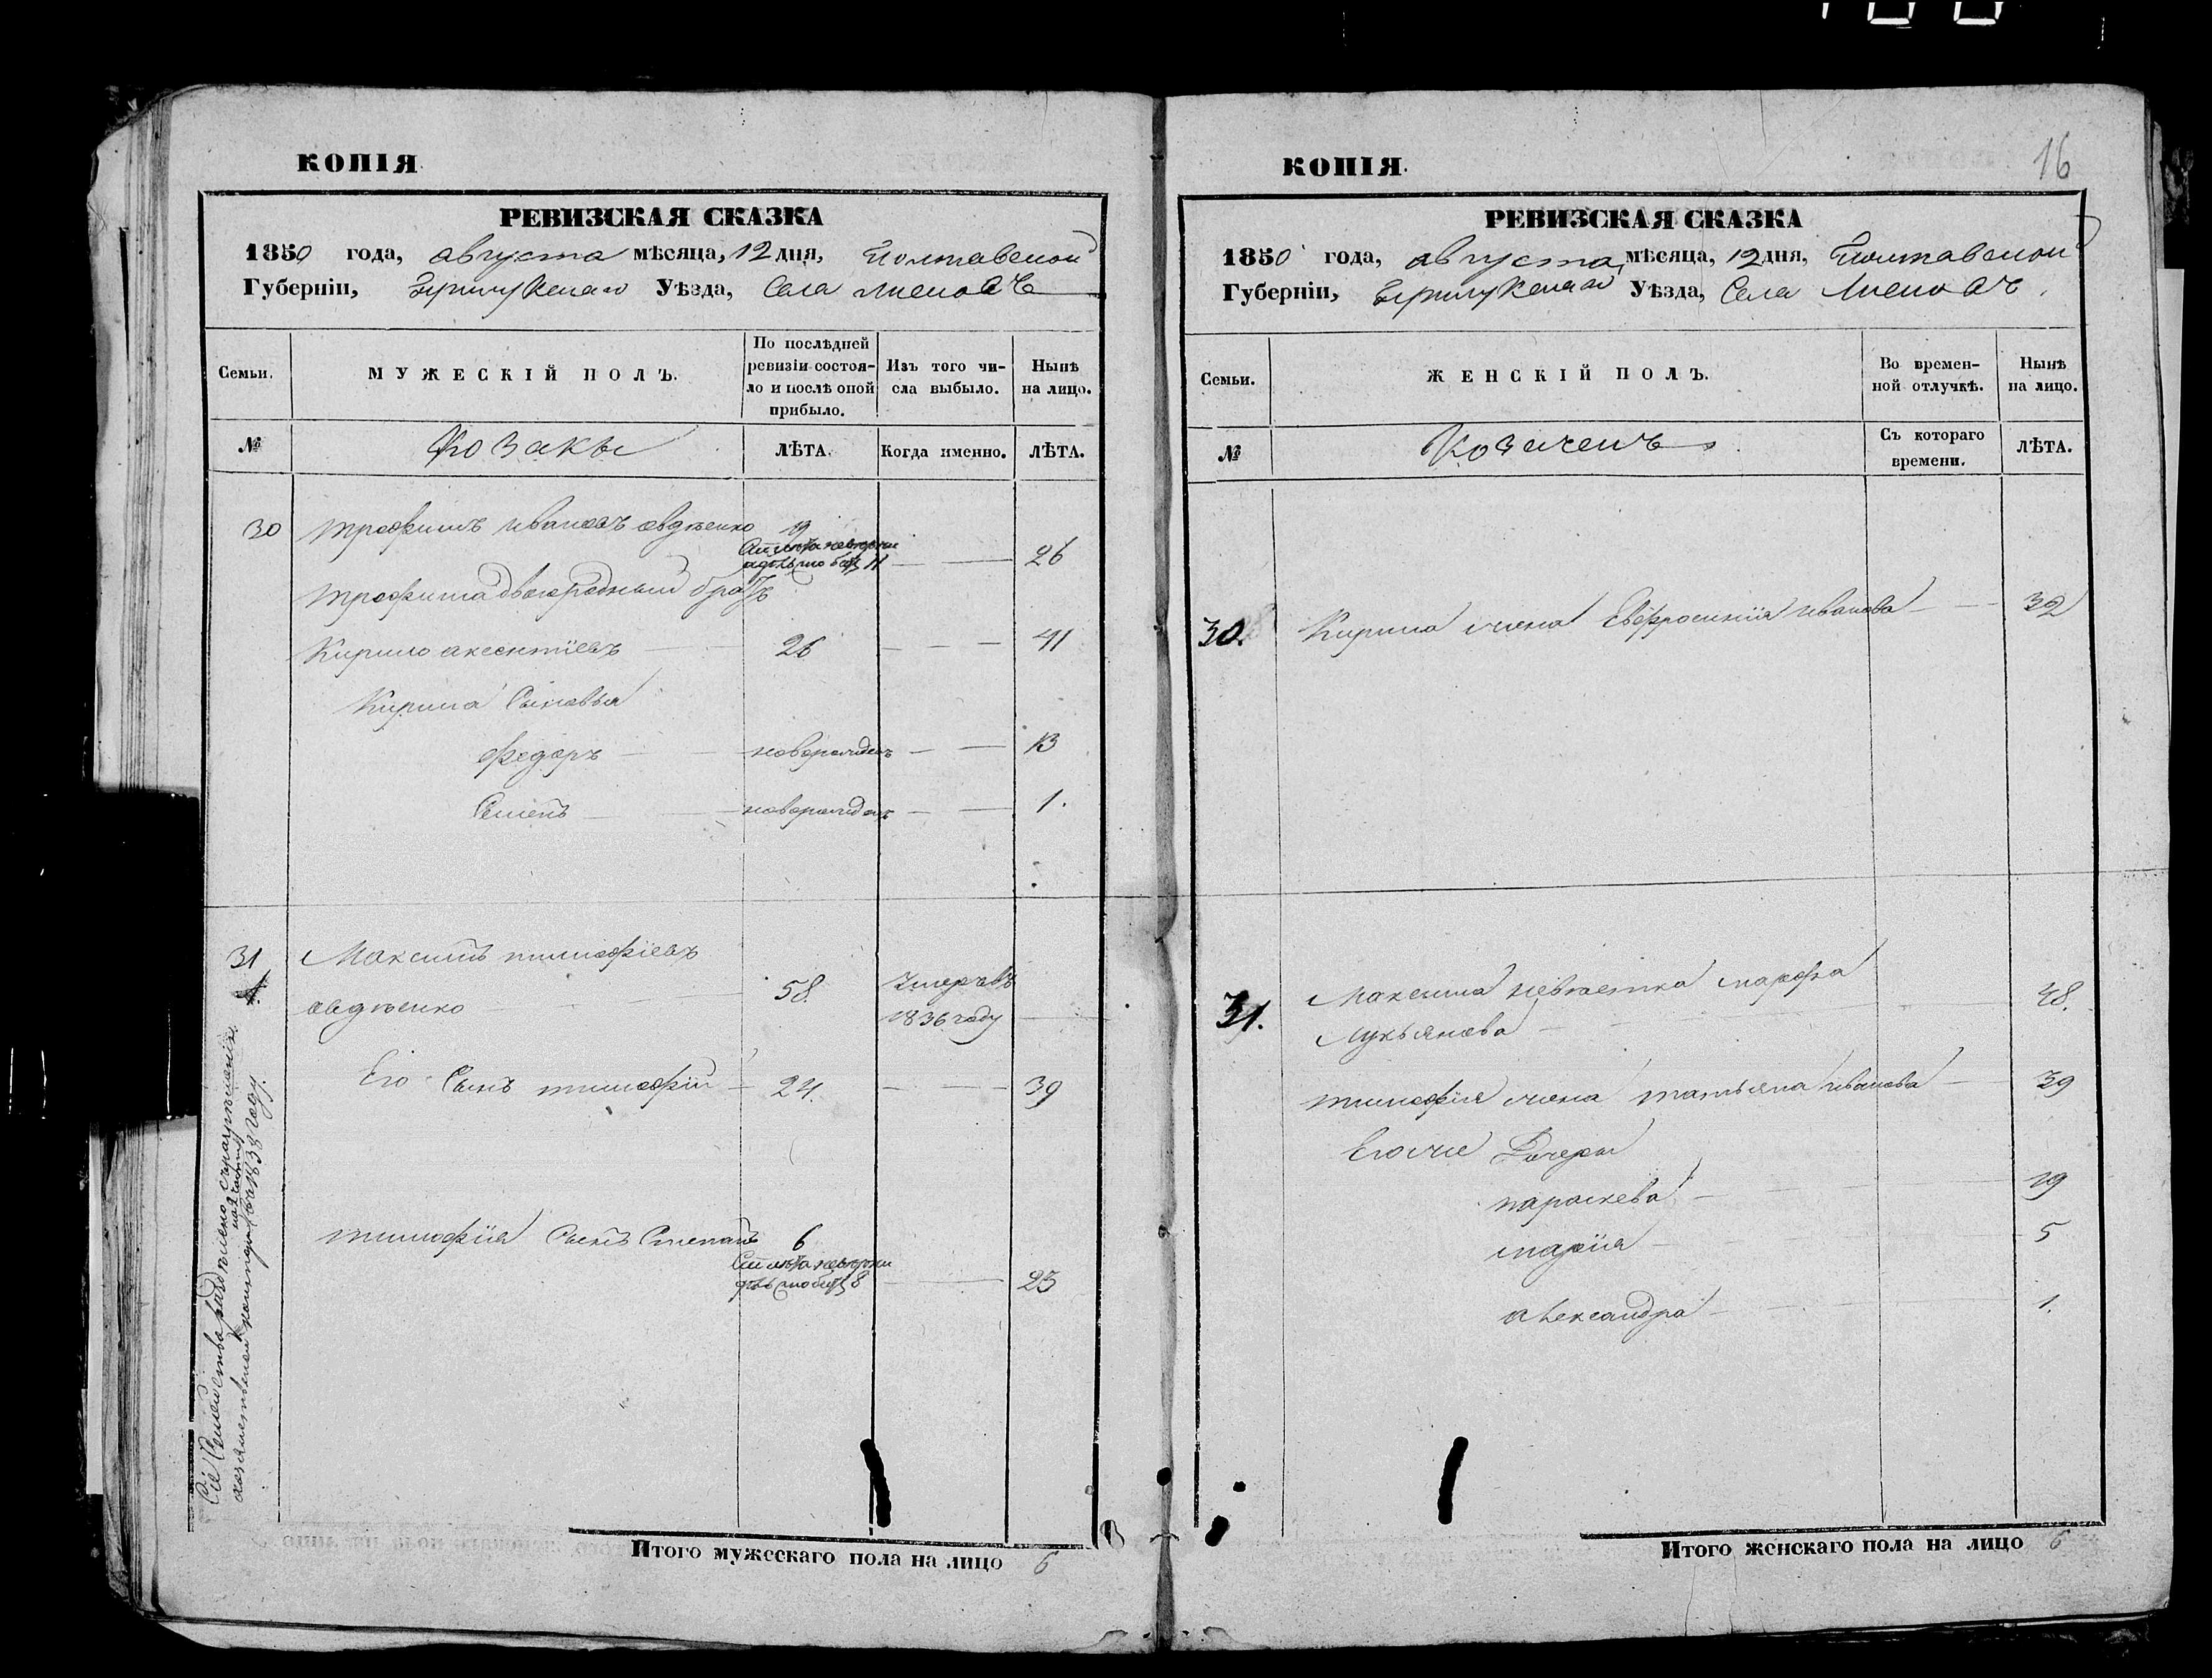 КОПІЯ
РЕВИЗСКАЯ СКАЗКА
1850 года, августа мѣсяца, 12 дня, Полтавской
Губерніи, Уѣзда, Села
Семьи.
МУЖЕСКІЙ ПОЛЪ.
По послѣдней ревизіи состояло и послѣ оной прибыло.
Изъ того числа выбыло.
Нынѣ на лицо.
№
Козаки
ЛѢТА.
Когда именно.
ЛѢТА.
30 Трофимъ Ивановъ Авдѣенко 19
26
Трофима двоюродный братъ
Кирило Аксентіевъ 26 41
Кирила Сыновья
Федоръ новорожденъ 13
Семенъ новорожденъ 1.
31 Максимъ Тимофіевъ
Авдѣенко 58. Умеръ въ
1836 году
Его Сынъ Тимофій 24. 39
Тимофія Сынъ Степанъ 6
23
Сіе Семейство раздѣлено съ разрѣшенія
1838 году.
Итого мужескаго пола на лицо 6
16
КОПІЯ.
РЕВИЗСКАЯ СКАЗКА
1850 года, августа мѣсяца, 12 дня, Полтавской
Губерніи, Уѣзда, Села
Семьи.
ЖЕНСКІЙ ПОЛЪ.
Во временной отлучкѣ.
Нынѣ на лицо.
№
Козачекъ
Съ котораго времени.
ЛѢТА.
30. Кирила жена Евфросинія Иванова 32
31. Максима невѣстка Марфа
Лукьянова 48.
Тимофія жена Татьяна Иванова 39
Его же Дочери
Параскева 19
Марія 5
Александра 1.
Итого женскаго пола на лицо 6